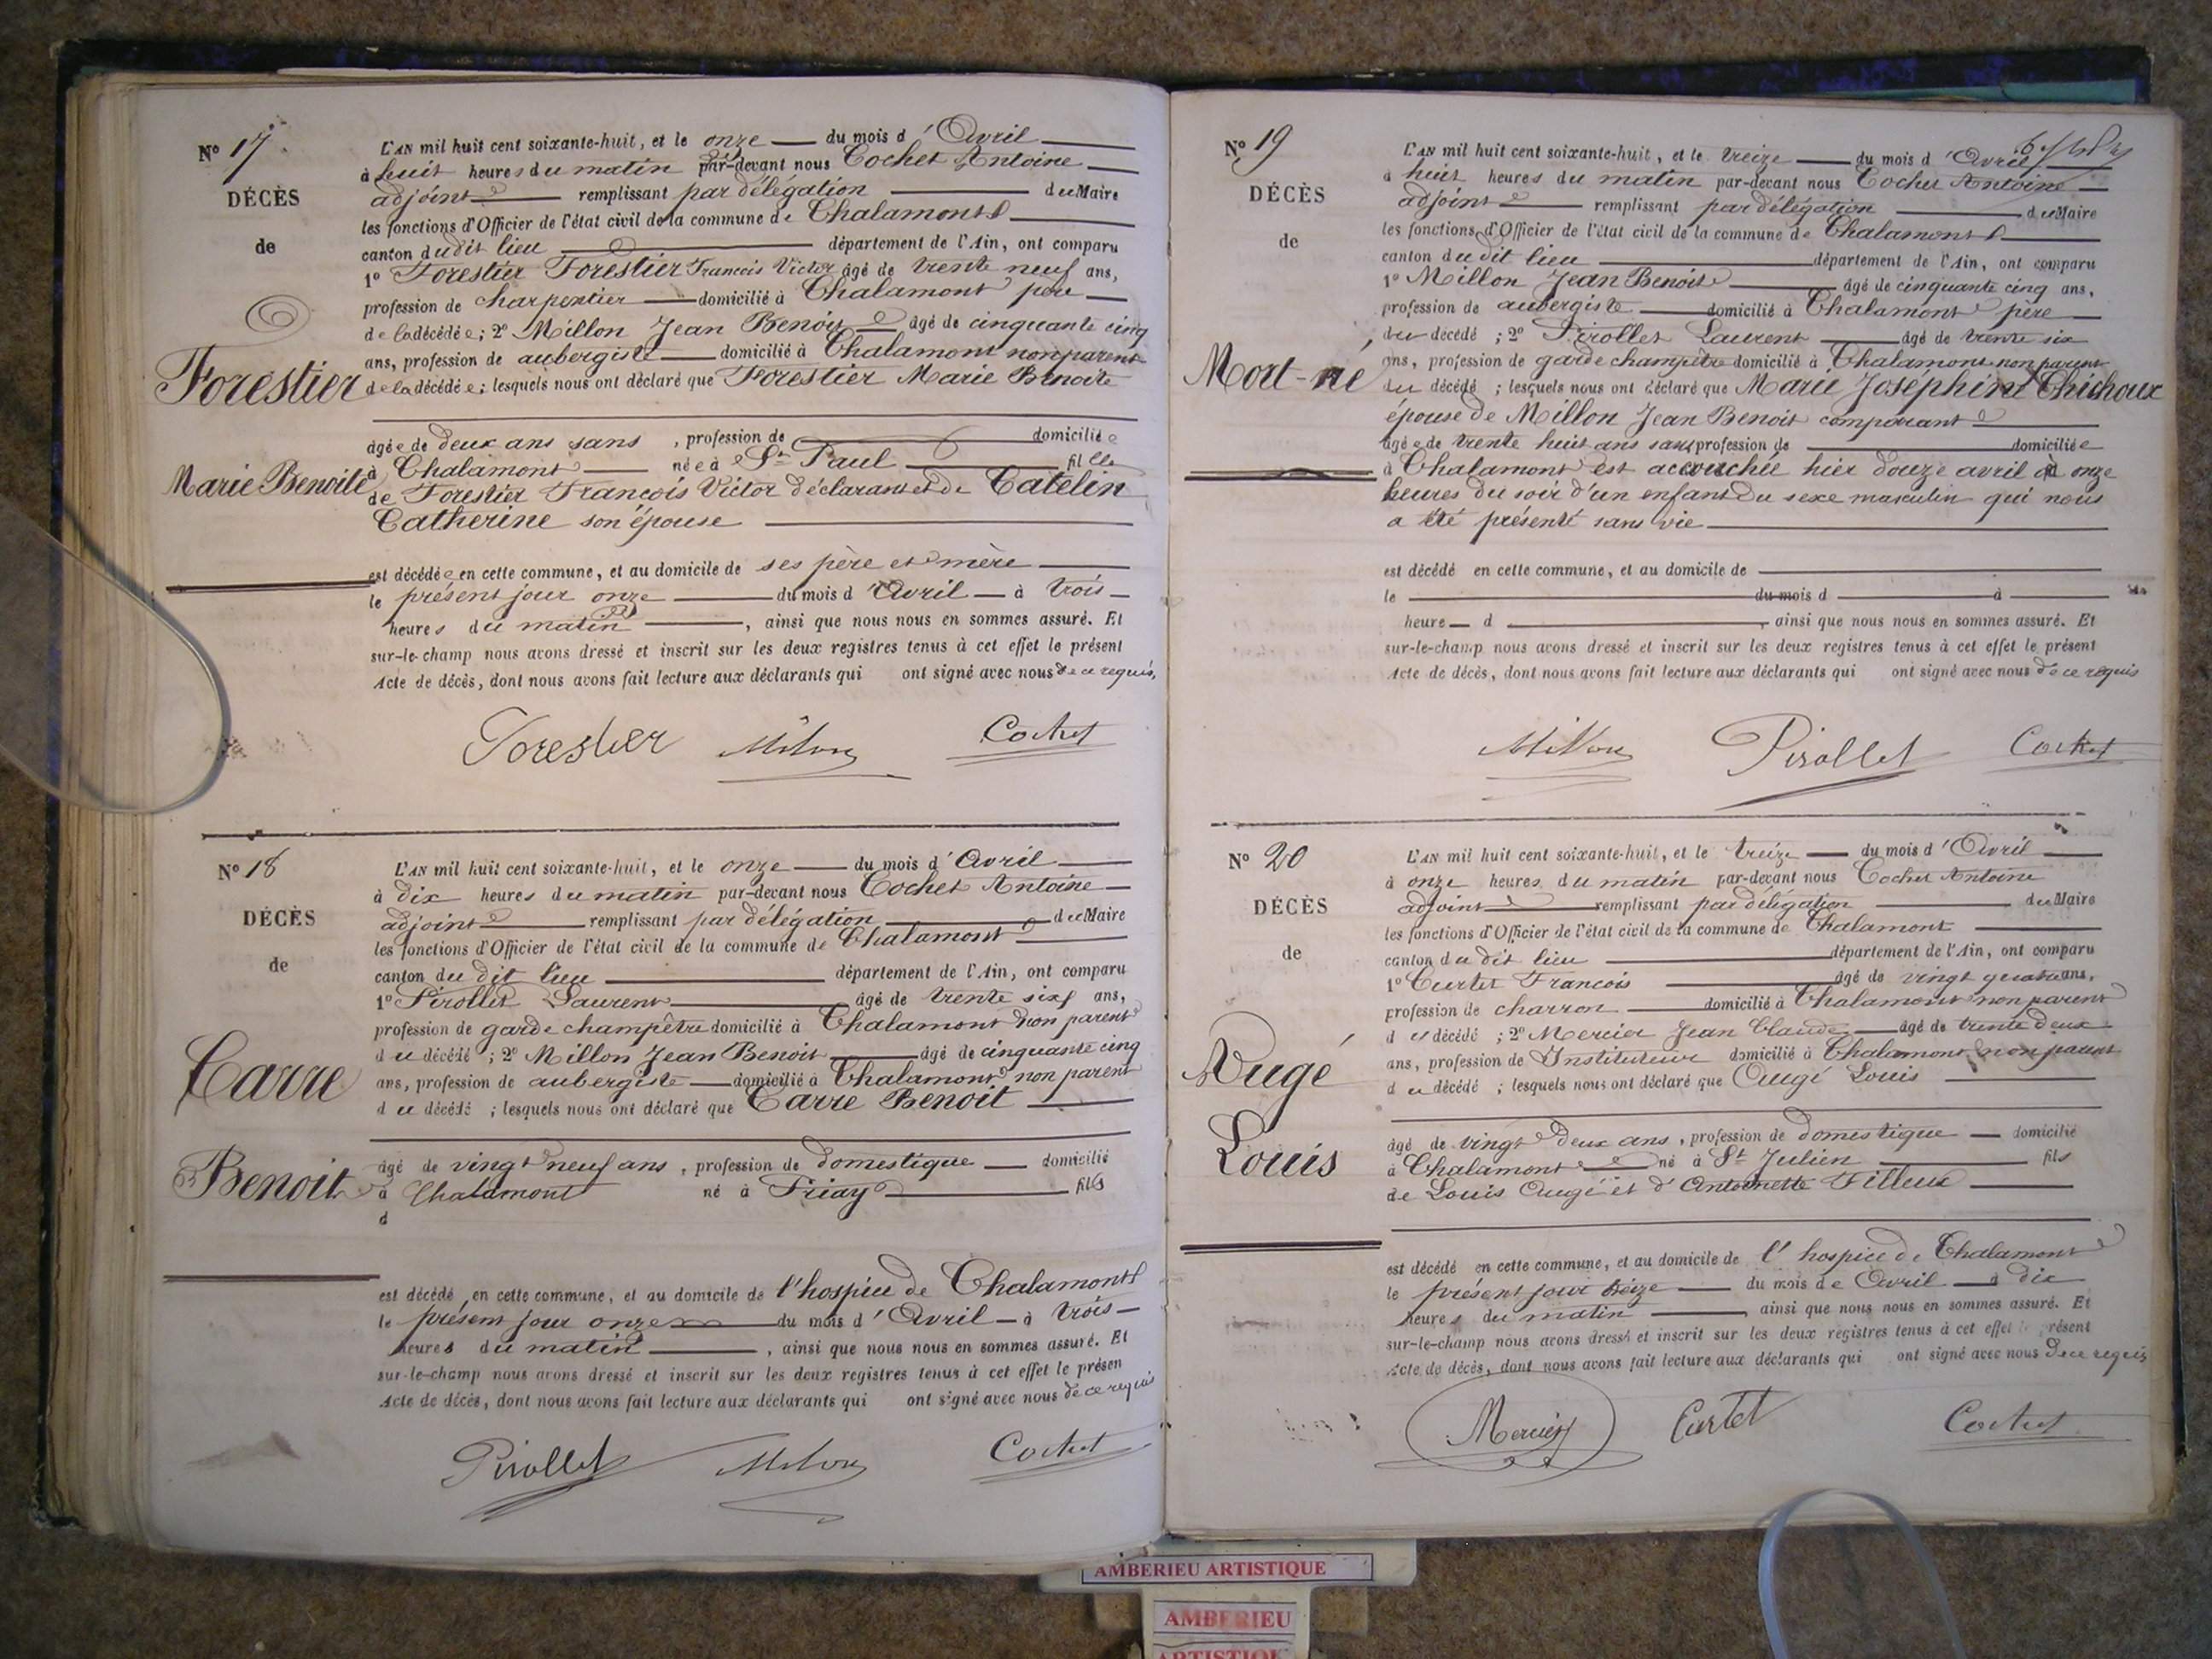 Nº 17
DÉCÈS
de
Forestier
Marie Benoite
L'AN mil huit cent soixante-huit, et le onze du mois d'Avril
à huit heures du matin par-devant nous Cochet Antoine
adjoint remplissant par délégation du Maire
les fonctions d'Officier de l'état civil de la commune de Chalamont
canton du dit lieu département de l'Ain, ont comparu
1º Forestier Forestier Francois Victor âgé de trente neuf ans,
profession de charpentier domicilié à Chalamont père
de la décédée; 2º Millon Jean Benoit âgé de cinquante cinq
ans, profession de aubergiste domicilié à Chalamont non parent
de la décédée; lesquels nous ont déclaré que Forestier Marie Benoite
âgée de deux ans sans, profession de domiciliée
à Chalamont née à St Paul fille
de Forestier François Victor déclarant et de Catelin
Catherine son épouse
est décédée en cette commune, et au domicile de ses père et mère
le présent jour onze du mois d'Avril à trois
heures du matin, ainsi que nous nous en sommes assuré. Et
sur-le-champ nous avons dressé et inscrit sur les deux registres tenus à cet effet le présent
Acte de décès, dont nous avons fait lecture aux déclarants qui ont signé avec nous de ce requis
Forestier Millon Cochet
Nº 18
DÉCÈS
de
Carre
Benoit
L'AN mil huit cent soixante-huit, et le onze du mois d'Avril
à dix heures du matin par-devant nous Cochet Antoine
adjoint remplissant par délégation du Maire
les fonctions d'Officier de l'état civil de la commune de Chalamont
canton du dit lieu département de l'Ain, ont comparu
1º Pirollet Laurent âgé de trente six ans,
profession de garde champêtre domicilié à Chalamont non parent
du décédé; 2º Millon Jean Benoit âgé de cinquante cinq
ans, profession de aubergiste domicilié à Chalamont non parent
du décédé; lesquels nous ont déclaré que Carre Benoit
âgé de vingt neuf ans, profession de domestique domicilié
à Chalamont né à Priay fils
d
est décédé en cette commune, et au domicile de l'hospice de Chalamont
le présent jour onze du mois d'Avril à trois
heures du matin, ainsi que nous nous en sommes assuré. Et
sur-le-champ nous avons dressé et inscrit sur les deux registres tenus à cet effet le présen
Acte de décès, dont nous avons fait lecture aux déclarants qui ont signé avec nous de ce requis
Pirollet Millon Cochet
Nº 19
DÉCÈS
de
Mort-né
L'AN mil huit cent soixante-huit, et le treize du mois d'Avril
à huit heures du matin par-devant nous Cochet Antoine
adjoint remplissant par délégation du Maire
les fonctions d'Officier de l'état civil de la commune de Chalamont
canton du dit lieu département de l'Ain, ont comparu
1º Millon Jean Benoit âgé de cinquante cinq ans,
profession de aubergiste domicilié à Chalamont père
du décédé; 2º Pirollet Laurent âgé de trente six
ans, profession de garde champêtre domicilié à Chalamont non parent
du décédé; lesquels nous ont déclaré que Marie Joséphine Chichoux
épouse de Millon Jean Benoit comparant
âgée de trente huit ans sans profession de domiciliée
à Chalamont est accouchée hier douze avril à onze
heures du soir d'un enfant du sexe masculin qui nous
a été présenté sans vie
est décédé en cette commune, et au domicile de
le du mois d à
heure d, ainsi que nous nous en sommes assuré. Et
sur-le-champ nous avons dressé et inscrit sur les deux registres tenus à cet effet le présent
Acte de décès, dont nous avons fait lecture aux déclarants qui ont signé avec nous de ce requis
Millon Pirollet Cochet
Nº 20
DÉCÈS
de
Augé
Louis
L'AN mil huit cent soixante-huit, et le treize du mois d'Avril
à onze heures du matin par-devant nous Cochet Antoine
adjoint remplissant par délégation du Maire
les fonctions d'Officier de l'état civil de la commune de Chalamont
canton du dit lieu département de l'Ain, ont comparu
1º Curtet Francois âgé de vingt quatre ans,
profession de charron domicilié à Chalamont non parent
du décédé; 2º Mercier Jean Claude âgé de trente deux
ans, profession de Instituteur domicilié à Chalamont non parent
du décédé; lesquels nous ont déclaré que Augé Louis
âgé de vingt deux ans, profession de domestique domicilié
à Chalamont né à St Julien fils
de Louis Augé et d'Antoinette Filleux
est décédé en cette commune, et au domicile de l'hospice de Chalamont
le présent jour treize du mois de Avril à dix
heures du matin, ainsi que nous nous en sommes assuré. Et
sur-le-champ nous avons dressé et inscrit sur les deux registres tenus à cet effet le présent
Acte de décès, dont nous avons fait lecture aux déclarants qui ont signé avec nous de ce requis
Mercier Curtet Cochet
AMBERIEU ARTISTIQUE
AMBERIEU
ARTISTIQUE